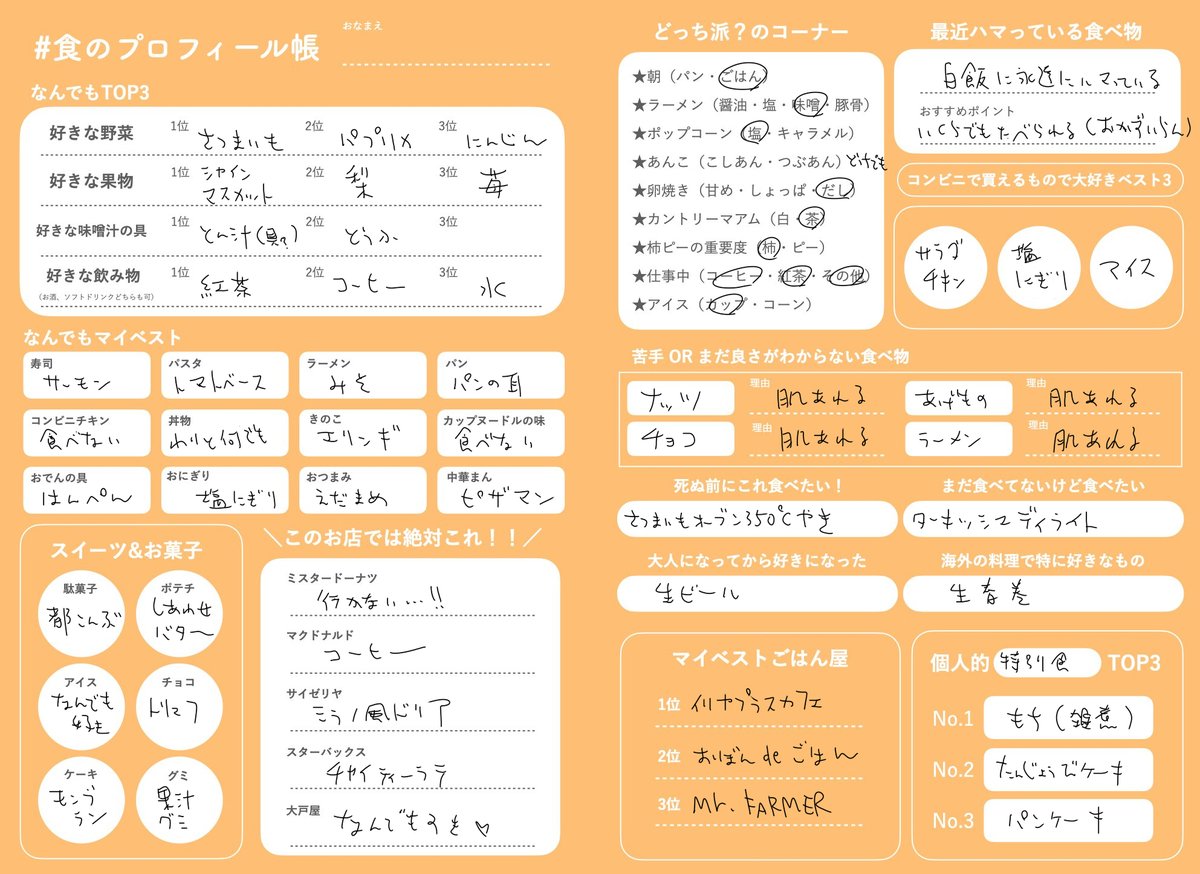 #食のプロフィール帳
おなまえ
なんでもTOP3
好きな野菜 1位 さつまいも 2位 パプリカ 3位 にんじん
好きな果物 1位 シャインマスカット 2位 梨 3位 苺
好きな味噌汁の具 1位 とん汁(具?) 2位 とうふ 3位
好きな飲み物 1位 紅茶 2位 コーヒー 3位 水
(お酒、ソフトドリンクどちらも可)
なんでもマイベスト
寿司 サーモン
パスタ トマトベース
ラーメン みそ
パン パンの耳
コンビニチキン 食べない
丼物 わりと何でも
きのこ エリンギ
カップヌードルの味 食べない
おでんの具 はんぺん
おにぎり 塩にぎり
おつまみ えだまめ
中華まん ピザマン
スイーツ&お菓子
駄菓子 都こんぶ
ポテチ しあわせバタ〜
アイス なんでも好き
チョコ トリュフ
ケーキ モンブラン
グミ 果汁グミ
＼このお店では絶対これ！！／
ミスタードーナツ
行かない…!!
マクドナルド
コーヒー
サイゼリヤ
ミラノ風ドリア
スターバックス
チャイティーラテ
大戸屋
なんでもすき♡
どっち派？のコーナー
★朝（パン・ごはん）
★ラーメン（醤油・塩・味噌・豚骨）
★ポップコーン（塩・キャラメル）
★あんこ（こしあん・つぶあん）どっちでも
★卵焼き（甘め・しょっぱ・だし）
★カントリーマアム（白・茶）
★柿ピーの重要度（柿・ピー）
★仕事中（コーヒー・紅茶・その他）
★アイス（カップ・コーン）
最近ハマっている食べ物
白飯に永遠にハマっている
おすすめポイント
いくらでもたべられる(おかずいらん)
コンビニで買えるもので大好きベスト3
サラダチキン
塩にぎり
アイス
苦手 OR まだ良さがわからない食べ物
ナッツ 理由 肌あれる
あげもの 理由 肌あれる
チョコ 理由 肌あれる
ラーメン 理由 肌あれる
死ぬ前にこれ食べたい！
さつまいもオーブン350℃やき
まだ食べてないけど食べたい
ターキッシュディライト
大人になってから好きになった
生ビール
海外の料理で特に好きなもの
生春巻
マイベストごはん屋
1位 イリヤプラスカフェ
2位 おぼん de ごはん
3位 Mr. FARMER
個人的 特別食 TOP3
No.1 もち(雑煮)
No.2 たんじょうびケーキ
No.3 パンケーキ